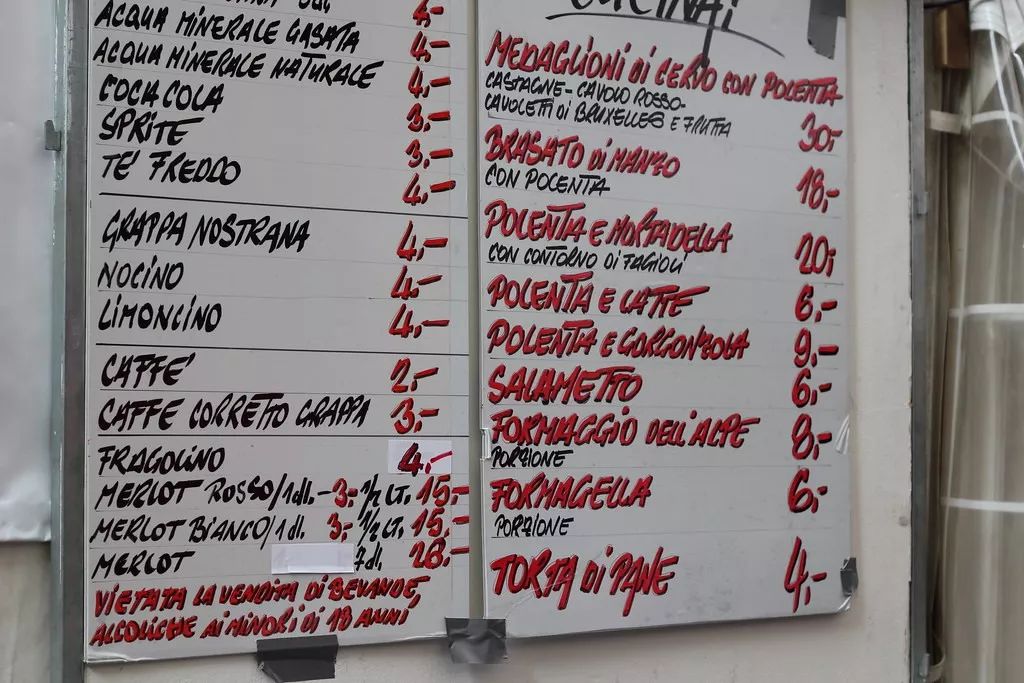 4.-
ACQUA MINERALE GASATA 4.-
ACQUA MINERALE NATURALE 4.-
COCA COLA 3.-
SPRITE 3.-
TE' FREDDO 4.-
GRAPPA NOSTRANA 4.-
NOCINO 4.-
LIMONCINO 4.-
CAFFE' 2.-
CAFFE CORRETTO GRAPPA 3.-
FRAGOLINO 4.-
MERLOT ROSSO/1dl. - 3.- 1/2 LT. 15.-
MERLOT BIANCO/1dl. 3.- 1/2 LT. 15.-
MERLOT 7dl. 28.-
VIETATA LA VENDITA DI BEVANDE
ALCOLICHE AI MINORI DI 18 ANNI
CUCINA:
MEDAGLIONI DI CERVO CON POLENTA
CASTAGNE - CAVOLO ROSSO -
CAVOLETTI DI BRUXELLES E FRUTTA 30.-
BRASATO DI MANZO
CON POLENTA 18.-
POLENTA E MORTADELLA
CON CONTORNO DI FAGIOLI 20.-
POLENTA E LATTE 6.-
POLENTA E GORGONZOLA 9.-
SALAMETTO 6.-
FORMAGGIO DELL'ALPE 8.-
PORZIONE
FORMAGELLA 6.-
PORZIONE
TORTA DI PANE 4.-